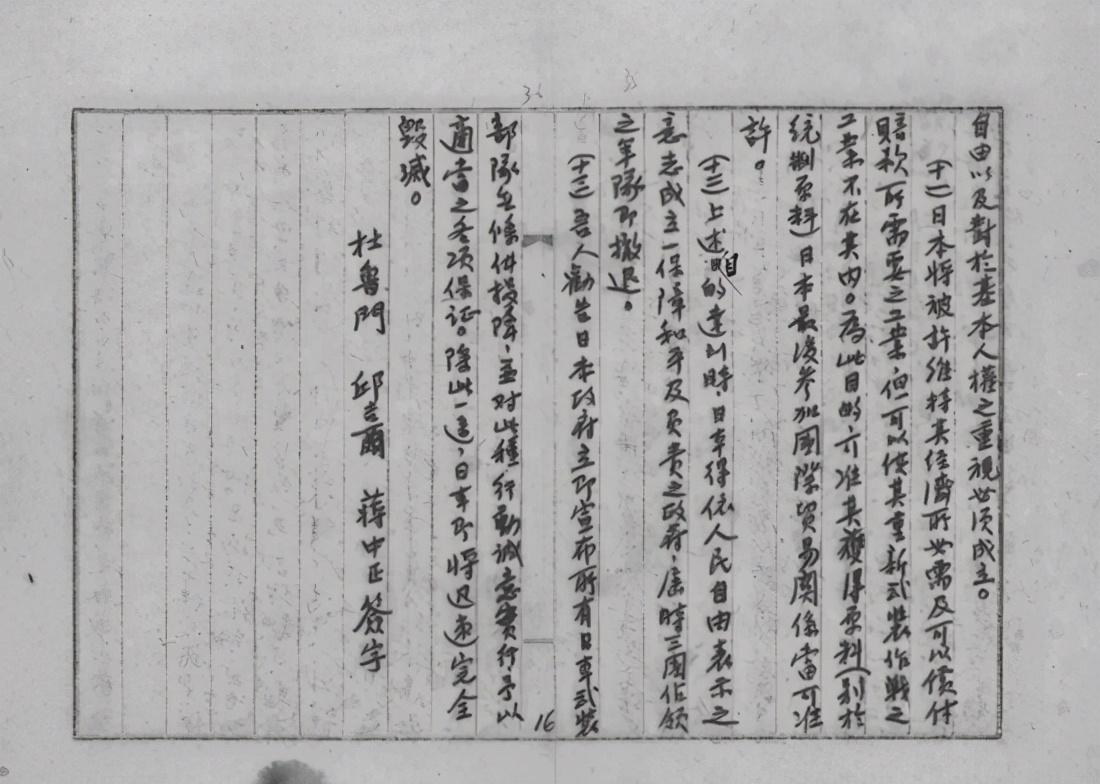 自由以及對於基本人權之重視必須成立。
(十一)日本將被許維持其经濟所必需及可以償付
賠款所需要之工業,但可以使其重新武裝作戰之
工業不在其内。為此目的,亦准其獲得原料(别於
统制原料)日本最後參加國際贸易関係當可准
許。
(十二)上述目的達到時,日本得依人民自由表示之
意志成立一保障和平及負責之政府,屆時三國佔領
之军隊即撤退。
(十三)吾人勸告日本政府立即宣布所有日本武装
部隊無條件投降,並对此種行動誠意實行予以
適當之各项保证。除此一途,日本即将迅速完全
毀滅。
杜魯門 邱吉爾 蔣中正 簽字
16
36